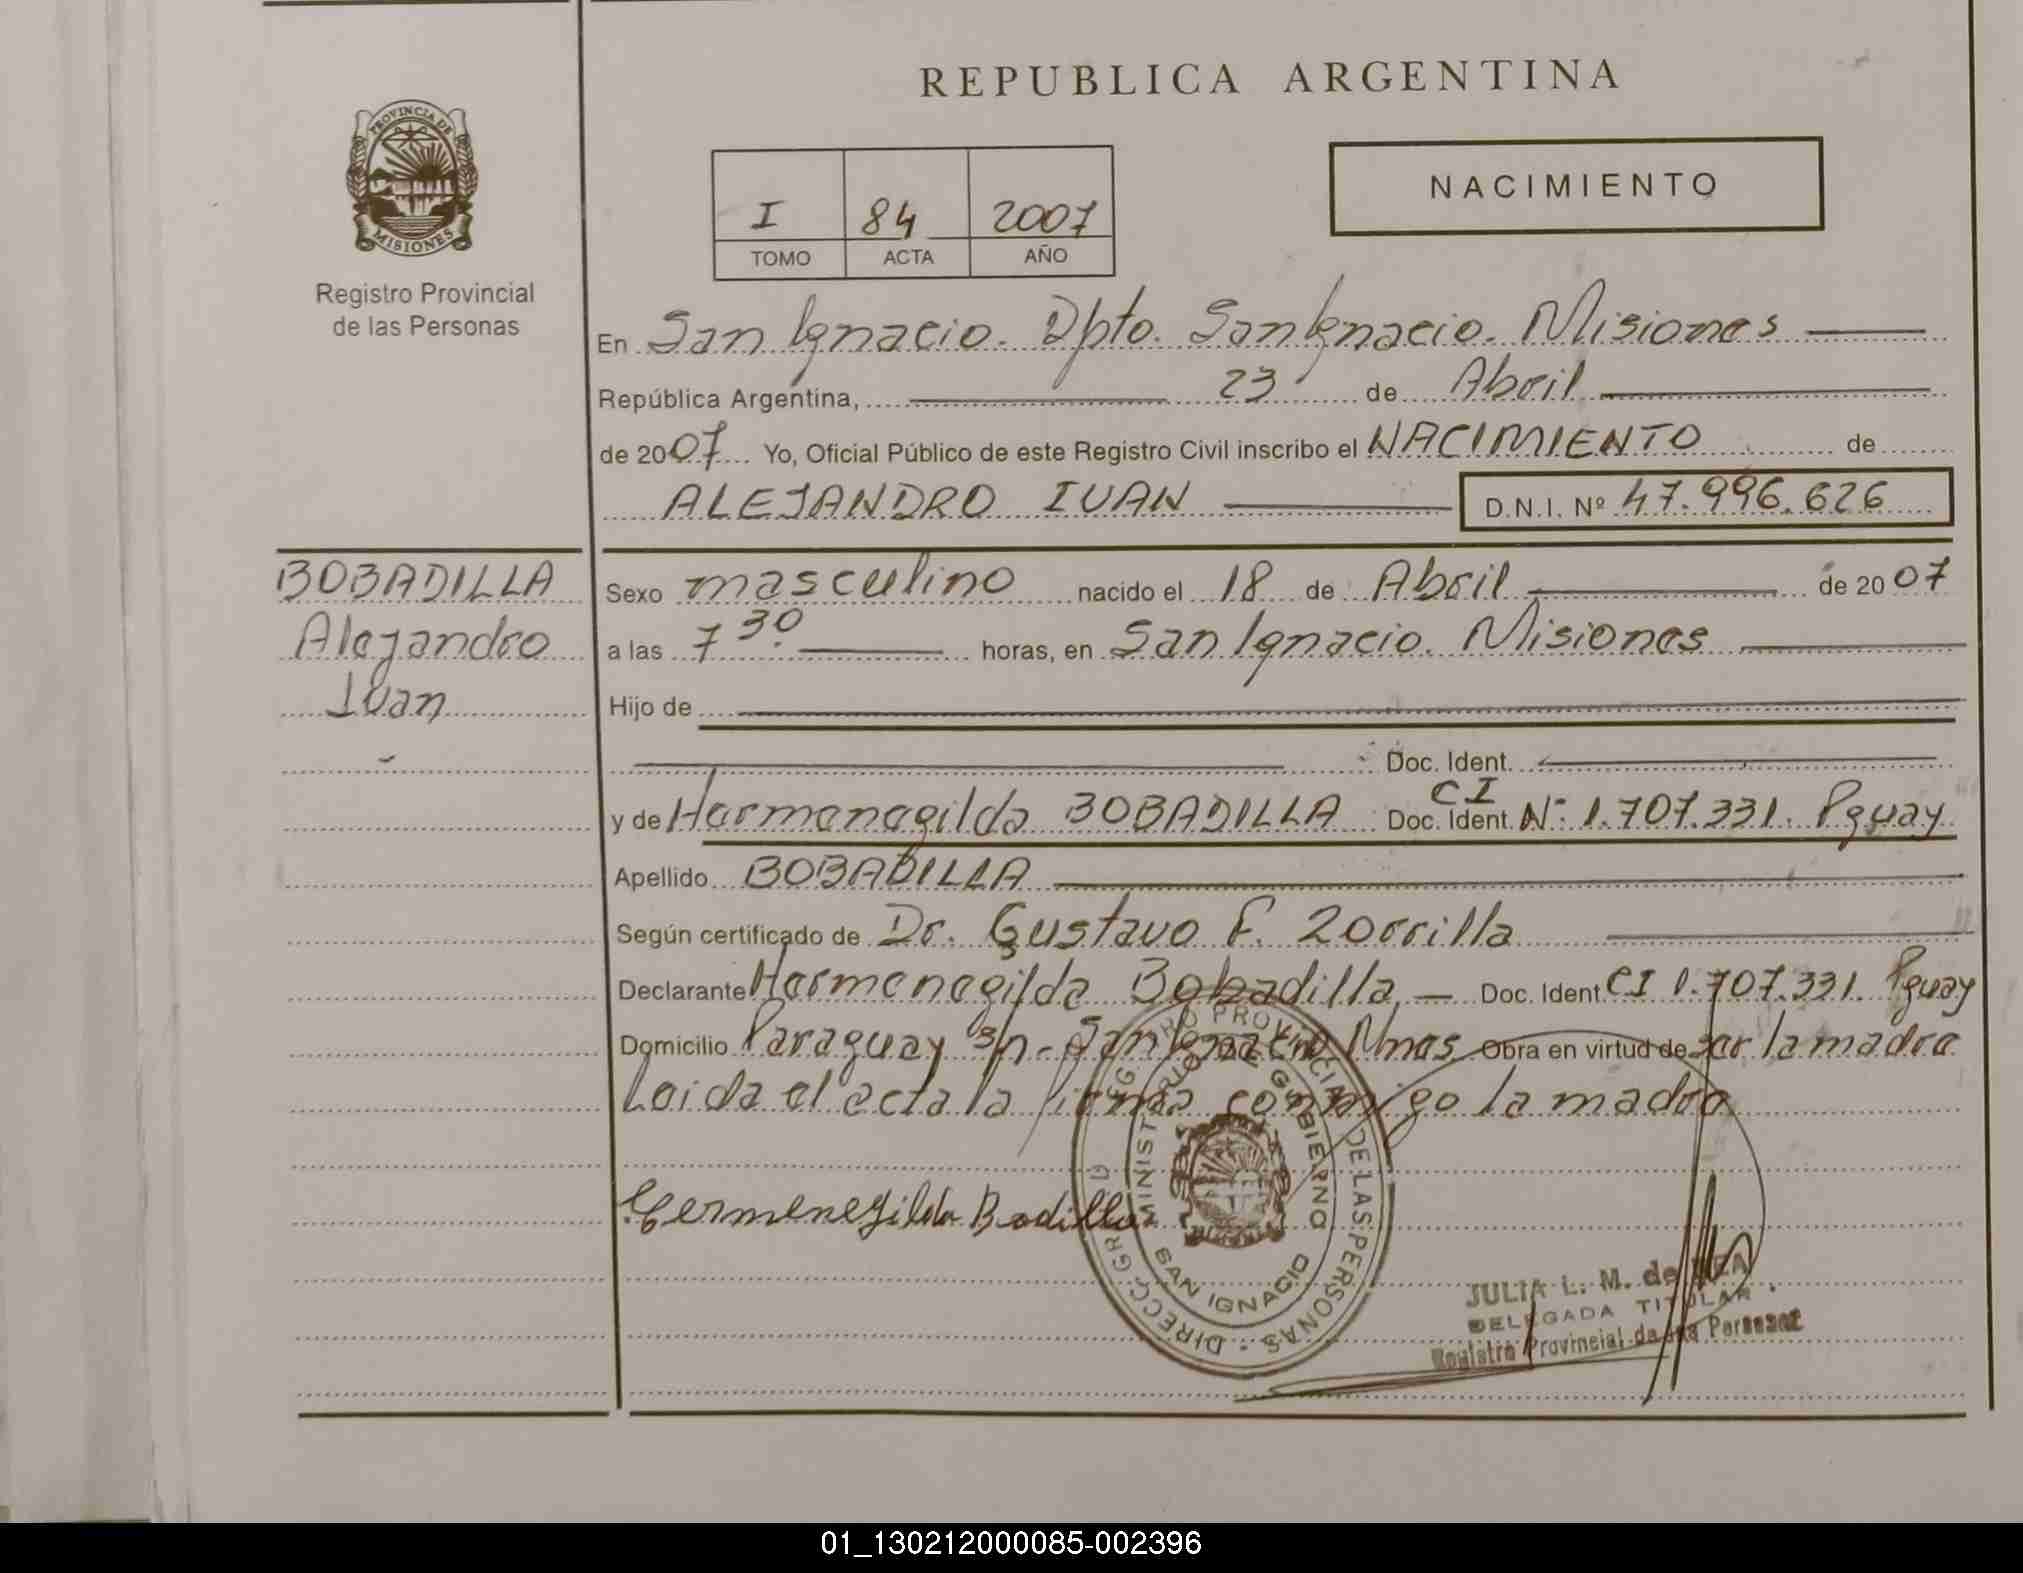 REPUBLICA ARGENTINA
PROVINCIA DE
MISIONES
Registro Provincial
de las Personas
NACIMIENTO
I 84 2007
TOMO ACTA AÑO
En San Ignacio. Dpto. San Ignacio. Misiones
República Argentina, 23 de Abril
de 2007 Yo, Oficial Público de este Registro Civil inscribo el NACIMIENTO de
ALEJANDRO IVAN D.N.I. Nº 47.996.626
BOBADILLA
Alejandro
Ivan
Sexo masculino nacido el 18 de Abril de 2007
a las 7 30 horas, en San Ignacio. Misiones
Hijo de
Doc. Ident.
y de Harmenegilda BOBADILLA Doc. Ident. CI Nº 1.707.331. Pguay
Apellido BOBADILLA
Según certificado de Dr. Gustavo F. Zorrilla
Declarante Harmenegilda Bobadilla Doc. Ident CI 1.707.331. Pguay
Domicilio Paraguay s/n - San Ignacio Mnes Obra en virtud de ser la madre
Leida el acta la firma conmigo la madre
Hermenegilda Badilla
DIRECC. GRAL REGISTRO PROVINCIAL DE LAS PERSONAS
MINISTERIO DE GOBIERNO
SAN IGNACIO
JULIA L. M. de
DELEGADA TITULAR
Registro Provincial de las Personas
01_130212000085-002396